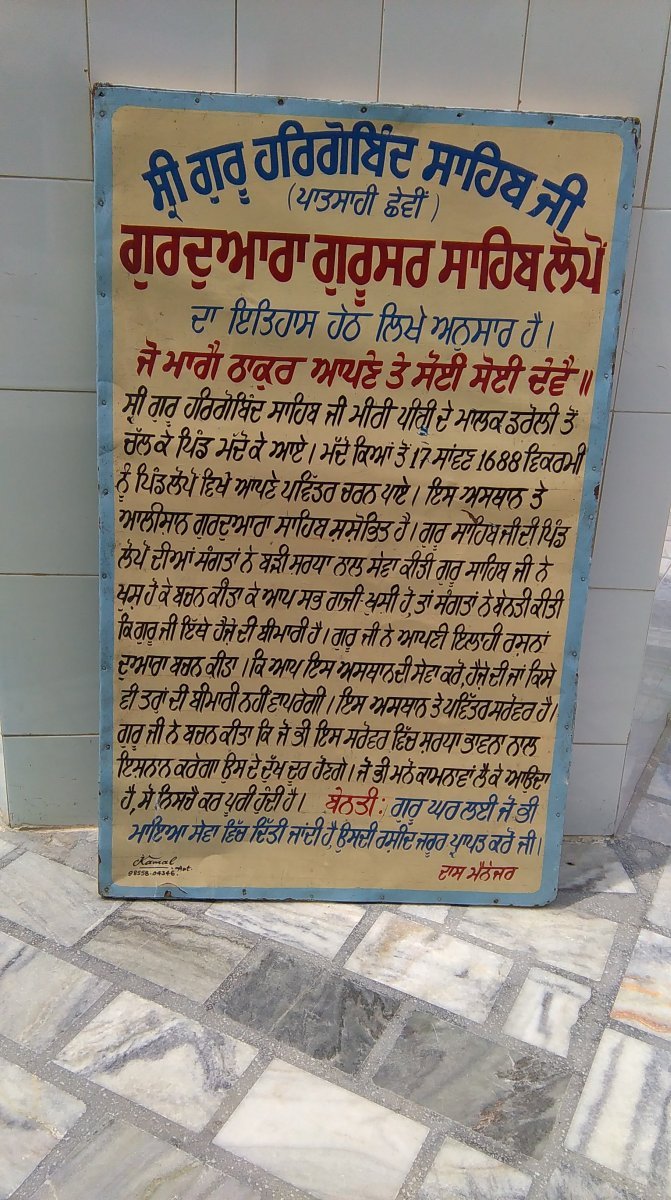 ਸ੍ਰੀ ਗੁਰੂ ਹਰਿਗੋਬਿੰਦ ਸਾਹਿਬ ਜੀ
(ਪਾਤਸਾਹੀ ਛੇਵੀਂ)
ਗੁਰਦੁਆਰਾ ਗੁਰੂਸਰ ਸਾਹਿਬ ਲੋਪੋਂ
ਦਾ ਇਤਿਹਾਸ ਹੇਠ ਲਿਖੇ ਅਨੁਸਾਰ ਹੈ।
ਜੋ ਮਾਗੈ ਠਾਕੁਰ ਆਪਣੇ ਤੇ ਸੋਈ ਸੋਈ ਦੇਵੈ॥
ਸ੍ਰੀ ਗੁਰੂ ਹਰਿਗੋਬਿੰਦ ਸਾਹਿਬ ਜੀ ਮੀਰੀ ਪੀਰੀ ਦੇ ਮਾਲਕ ਡਰੋਲੀ ਤੋਂ
ਚੱਲ ਕੇ ਪਿੰਡ ਮੱਦੋਕੇ ਆਏ। ਮੱਦੋਕਿਆਂ ਤੋਂ 17 ਸਾਂਵਣ 1688 ਵਿਕਰਮੀ
ਨੂੰ ਪਿੰਡ ਲੋਪੋਂ ਵਿਖੇ ਆਪਣੇ ਪਵਿੱਤਰ ਚਰਨ ਪਾਏ। ਇਸ ਅਸਥਾਨ ਤੇ
ਆਲੀਸ਼ਾਨ ਗੁਰਦੁਆਰਾ ਸਾਹਿਬ ਸੁਸ਼ੋਭਿਤ ਹੈ। ਗੁਰੂ ਸਾਹਿਬ ਜੀ ਦੀ ਪਿੰਡ
ਲੋਪੋਂ ਦੀਆਂ ਸੰਗਤਾਂ ਨੇ ਬੜੀ ਸ਼ਰਧਾ ਨਾਲ ਸੇਵਾ ਕੀਤੀ ਗੁਰੂ ਸਾਹਿਬ ਜੀ ਨੇ
ਖੁਸ਼ ਹੋ ਕੇ ਬਚਨ ਕੀਤਾ ਕੇ ਆਪ ਸਭ ਰਾਜੀ ਖੁਸੀ ਹੋ, ਤਾਂ ਸੰਗਤਾਂ ਨੇ ਬੇਨਤੀ ਕੀਤੀ
ਕਿ ਗੁਰੂ ਜੀ ਇੱਥੇ ਹੈਜ਼ੇ ਦੀ ਬੀਮਾਰੀ ਹੈ। ਗੁਰੂ ਜੀ ਨੇ ਆਪਣੀ ਇਲਾਹੀ ਰਸਨਾਂ
ਦੁਆਰਾ ਬਚਨ ਕੀਤਾ। ਕਿ ਆਪ ਇਸ ਅਸਥਾਨ ਦੀ ਸੇਵਾ ਕਰੋ, ਹੈਜ਼ੇ ਦੀ ਜਾਂ ਕਿਸੇ
ਵੀ ਤਰ੍ਹਾਂ ਦੀ ਬੀਮਾਰੀ ਨਹੀਂ ਵਾਪਰੇਗੀ। ਇਸ ਅਸਥਾਨ ਤੇ ਪਵਿੱਤਰ ਸਰੋਵਰ ਹੈ।
ਗੁਰੂ ਜੀ ਨੇ ਬਚਨ ਕੀਤਾ ਕਿ ਜੋ ਭੀ ਇਸ ਸਰੋਵਰ ਵਿੱਚ ਸ਼ਰਧਾ ਭਾਵਨਾ ਨਾਲ
ਇਸ਼ਨਾਨ ਕਰੇਗਾ ਉਸ ਦੇ ਦੁੱਖ ਦੂਰ ਹੋਣਗੇ। ਜੋ ਭੀ ਮਨੋ ਕਾਮਨਾਵਾਂ ਲੈ ਕੇ ਆਉਂਦਾ
ਹੈ, ਸੋ ਨਿਸਚੈ ਕਰ ਪੂਰੀ ਹੁੰਦੀ ਹੈ। ਬੇਨਤੀ: ਗੁਰੂ ਘਰ ਲਈ ਜੋ ਭੀ
ਮਾਇਆ ਸੇਵਾ ਵਿੱਚ ਦਿੱਤੀ ਜਾਂਦੀ ਹੈ, ਉਸਦੀ ਰਸੀਦ ਜਰੂਰ ਪ੍ਰਾਪਤ ਕਰੋ ਜੀ।
ਦਾਸ ਮੈਨੇਜਰ
Kamal Art.
98558-04346